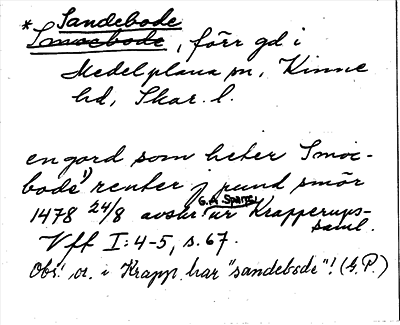 Sandebode
* Smocbode, förr gd i
Medelplana sn, Kinne
hd, Skar. l.
en gord som heter Smoc-
bode¹) renter j pund smör
G. A. Sparres
1478 24/8 avskr. ur Krapperups-
saml.
Vff I:4-5, s. 67.
Obs! or. i Krapp. har "sandebode"! (G.P.)